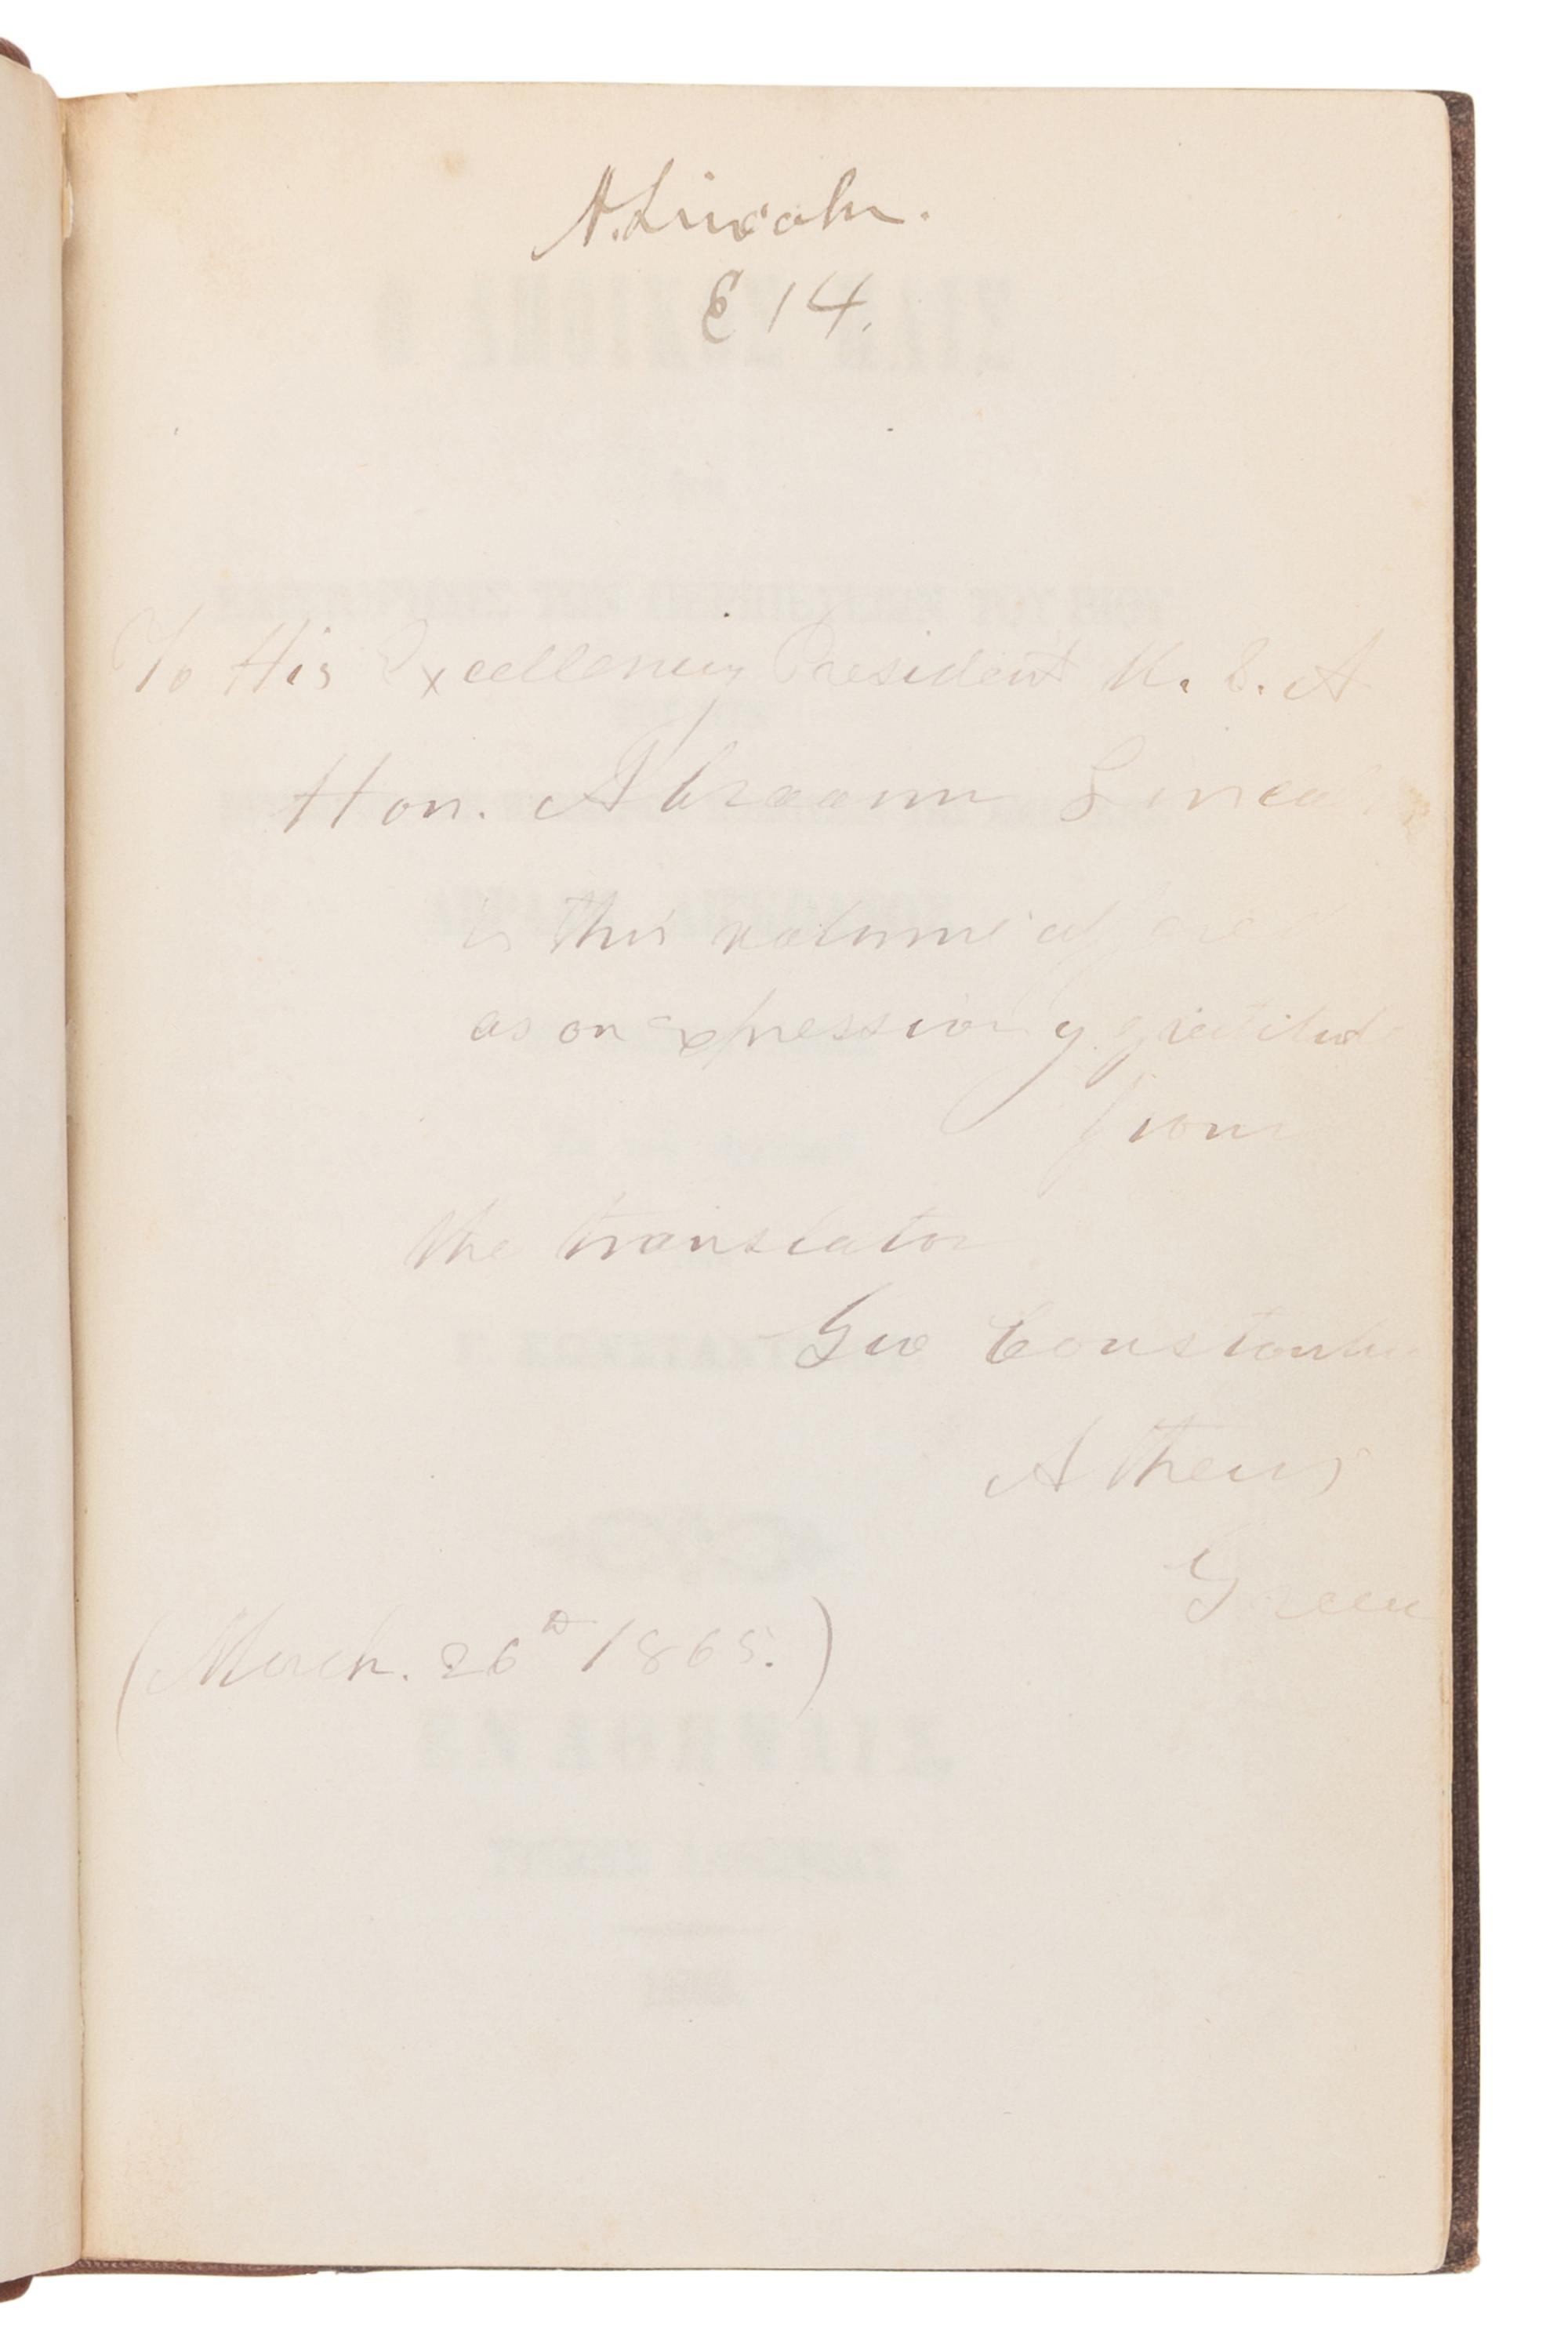 A. Lincoln.
E 14.
To His Excellency President U. S. A
Hon. Abraam Lincoln
is this volume offered
as an expression of gratitude
from
the translator
Geo Constantine
Athens
Greece
(March. 26th 1865.)